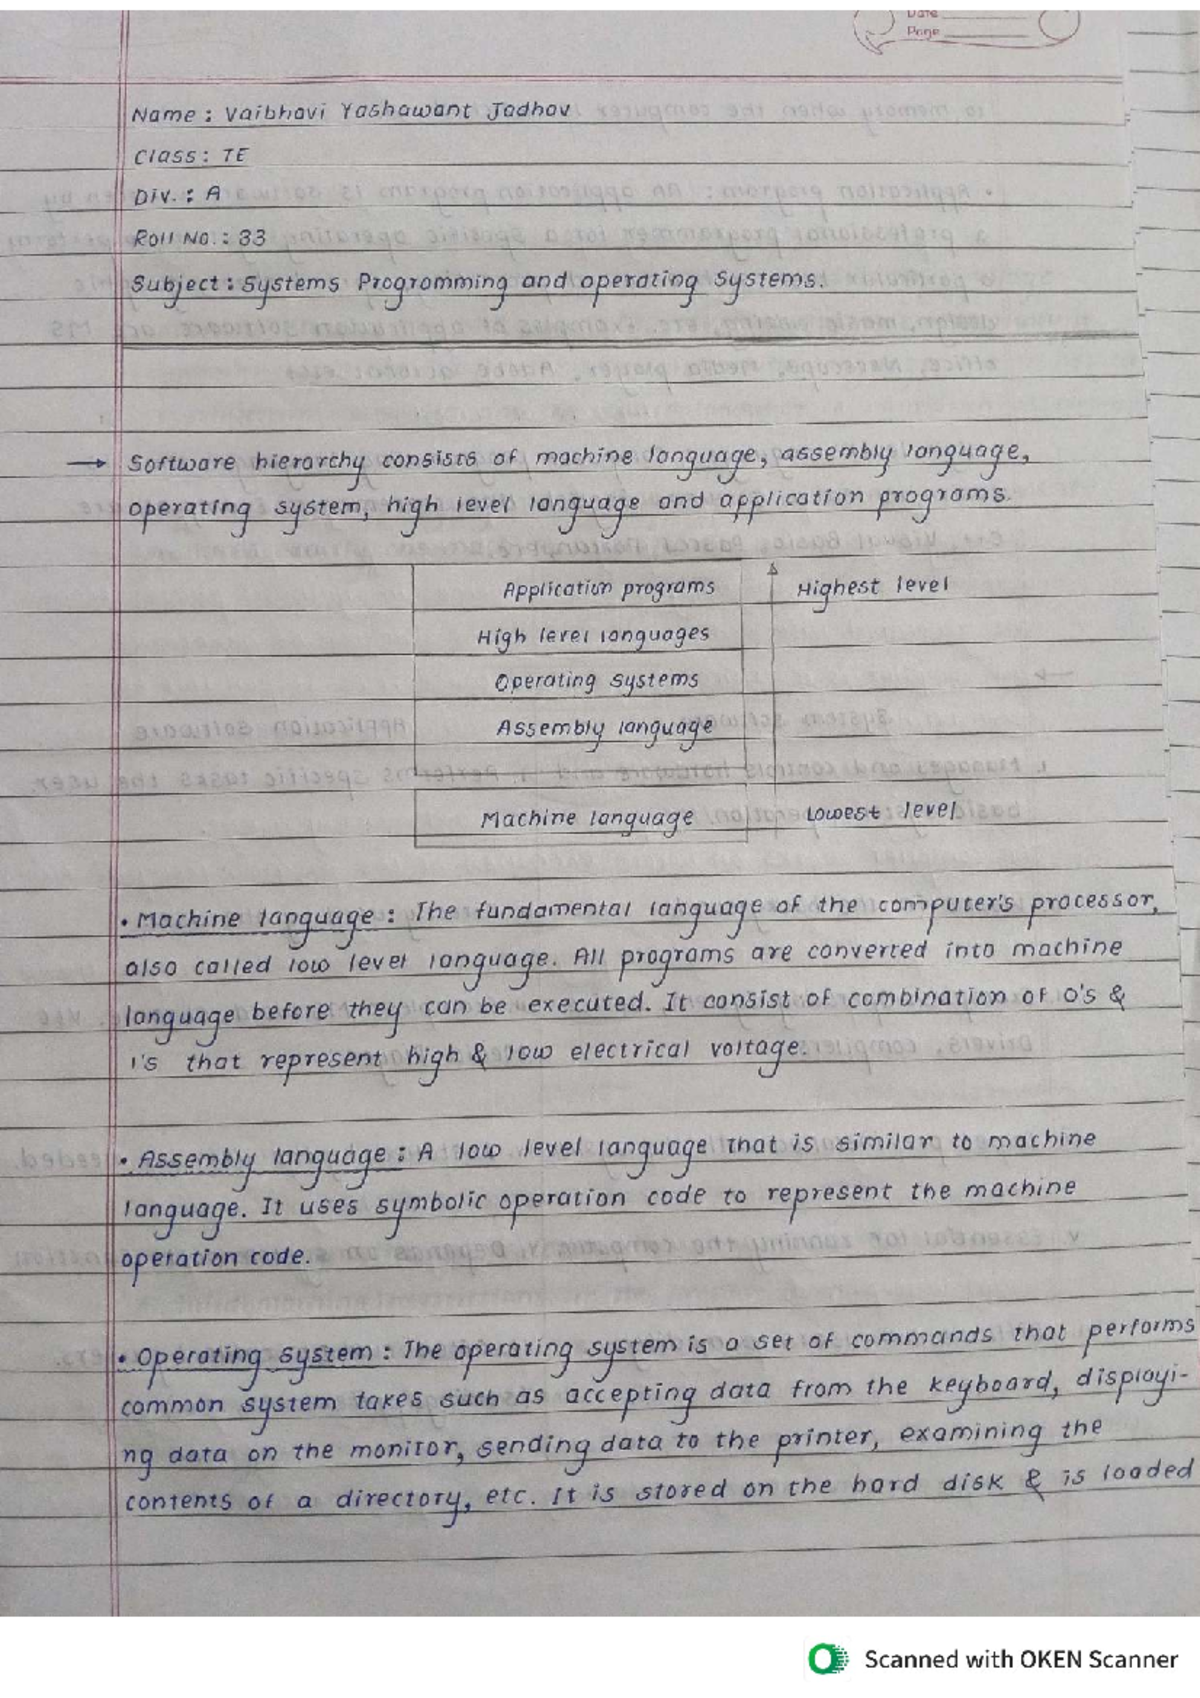 Date
Page
Name : Vaibhavi Yashawant Jadhav
Class : TE
Div. : A
Roll No. : 33
Subject : Systems Programming and operating Systems.
→ Software hierarchy consists of machine language, assembly language,
operating system, high level language and application programs.
Application programs Highest level
High level languages
Operating systems
Assembly language
Machine language Lowest level
• Machine language : The fundamental language of the computer's processor,
also called low level language. All programs are converted into machine
language before they can be executed. It consist of combination of 0's &
1's that represent high & low electrical voltage.
• Assembly language : A low level language that is similar to machine
language. It uses symbolic operation code to represent the machine
operation code.
• Operating system : The operating system is a set of commands that performs
common system takes such as accepting data from the keyboard, displayi-
ng data on the monitor, sending data to the printer, examining the
contents of a directory, etc. It is stored on the hard disk & is loaded
Scanned with OKEN Scanner